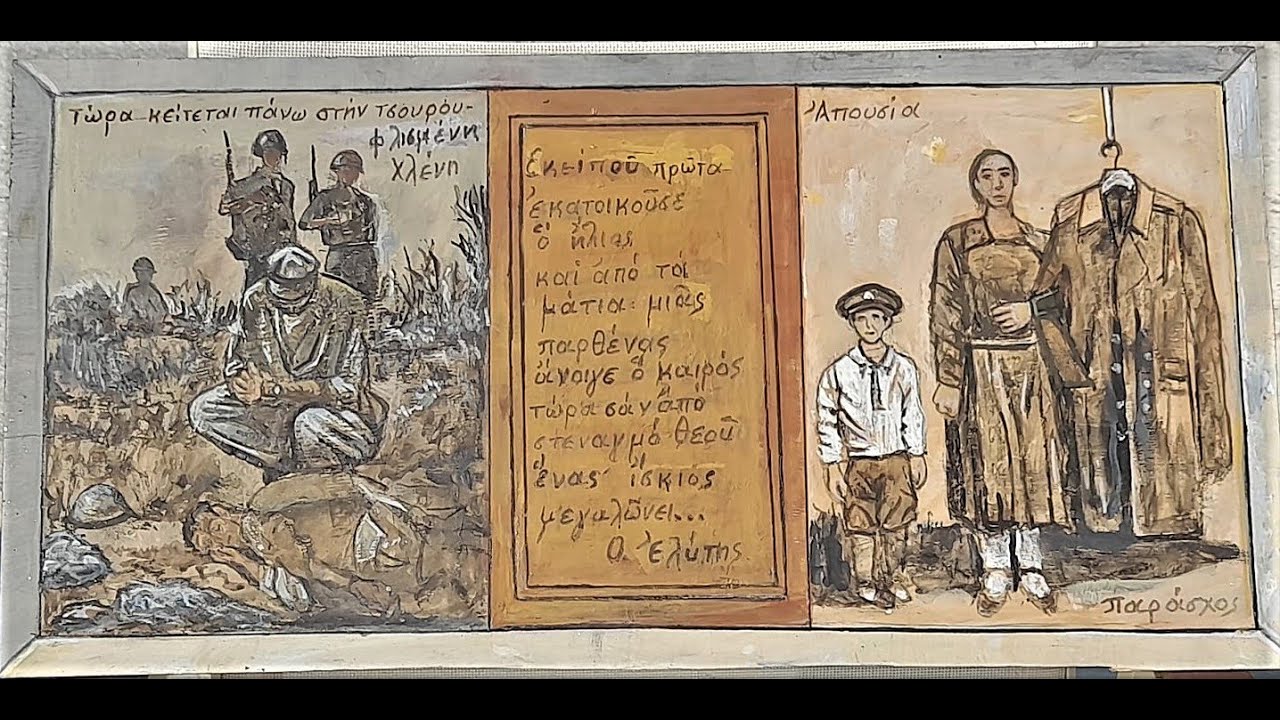 Τώρα κείτεται πάνω στήν τσουρου-
φλισμένη
χλένη
Ἐκεί ποῦ πρῶτα
ἐκατοικοῦσε
ὁ ἥλιος
καί ἀπό τά
μάτια μιᾶς
παρθένας
ἄνοιγε ὁ καιρός
τώρα σάν ἀπό
στεναγμό θεοῦ
ἕνας ἴσκιος
μεγαλώνει...
Ο. Ἐλύτης
Ἀπουσία
παράσχος